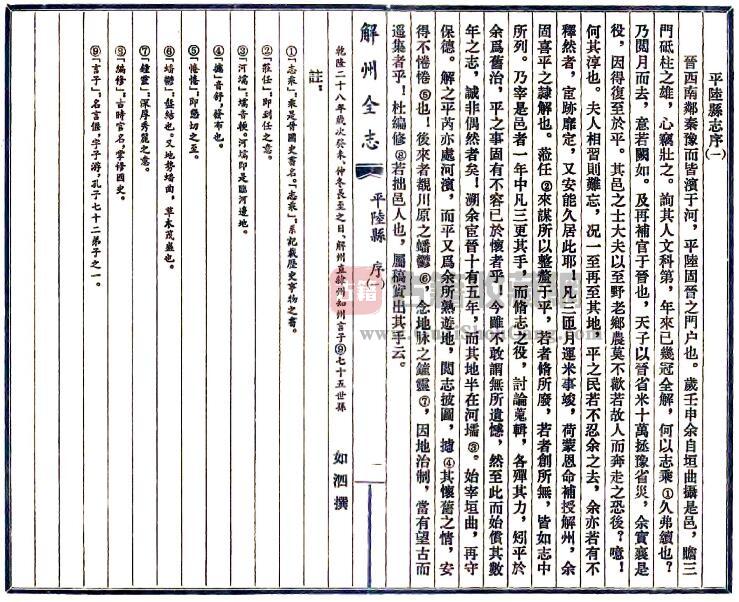 平陸縣志序㈠
晉西南鄰秦豫而皆濱于河，平陸固晉之門户也。歲壬申余自垣曲攝是邑，瞻三
門砥柱之雄，心竊壯之。詢其人文科第，年來已幾冠全解，何以志乘①久弗續也？
乃閱月而去，意若闕如。及再補官于晉也，天子以晉省米十萬拯豫省災，余實襄是
役，因得復至於平。其邑之士大夫以至野老鄉農莫不歡若故人而奔走之恐後？噫！
何其淳也。夫人相習則難忘，况一至再至其地，平之民若不忍余之去，余亦若有不
釋然者，宦跡靡定，又安能久居此耶！凡三匝月運米事竣，荷蒙恩命補授解州，余
固喜平之隷解也。蒞任②來謀所以整釐于平，若者脩所廢，若者創所無，皆如志中
所列。乃宰是邑者一年中凡三更其手，而脩志之役，討論蒐輯，各殫其力，矧平於
余爲舊治，平之事固有不容已於懷者乎！今雖不敢謂無所遺憾，然至此而始償其數
年之志，誠非偶然者矣！溯余宦晉十有五年，而其地半在河壖③。始宰垣曲，再守
保德。解之平芮亦處河濱，而平又爲余所熟遊地，閲志披圖，攄④其懷舊之情，安
得不惓惓⑤也！後來者覩川原之蟠鬱⑥，念地脉之鍾靈⑦，因地治制，當有望古而
遥集者乎！杜編修⑧若拙邑人也，屬稿實出其手云。
解州全志
平陸縣 序㈠
一
乾隆二十八年歲次癸未、仲冬長至之日、解州直隸州知州言子⑨七十五世孫
如泗撰
註：
①「志乘」：乘是晉國史書名。「志乘」，系記載歷史事物之書。
②「蒞任」：即到任之意。
③「河壖」：壖音軟。河壖即是臨河邊地。
④「攄」音舒，發布也。
⑤「惓惓」：即懇切之至。
⑥「蟠鬱」：盤結也。又地勢墻曲，草木茂盛也。
⑦「鍾靈」：深厚秀麗之意。
⑧「編修」：古時官名，掌修國史。
⑨「言子」：名言偃，字子游，孔子七十二弟子之一。
古籍